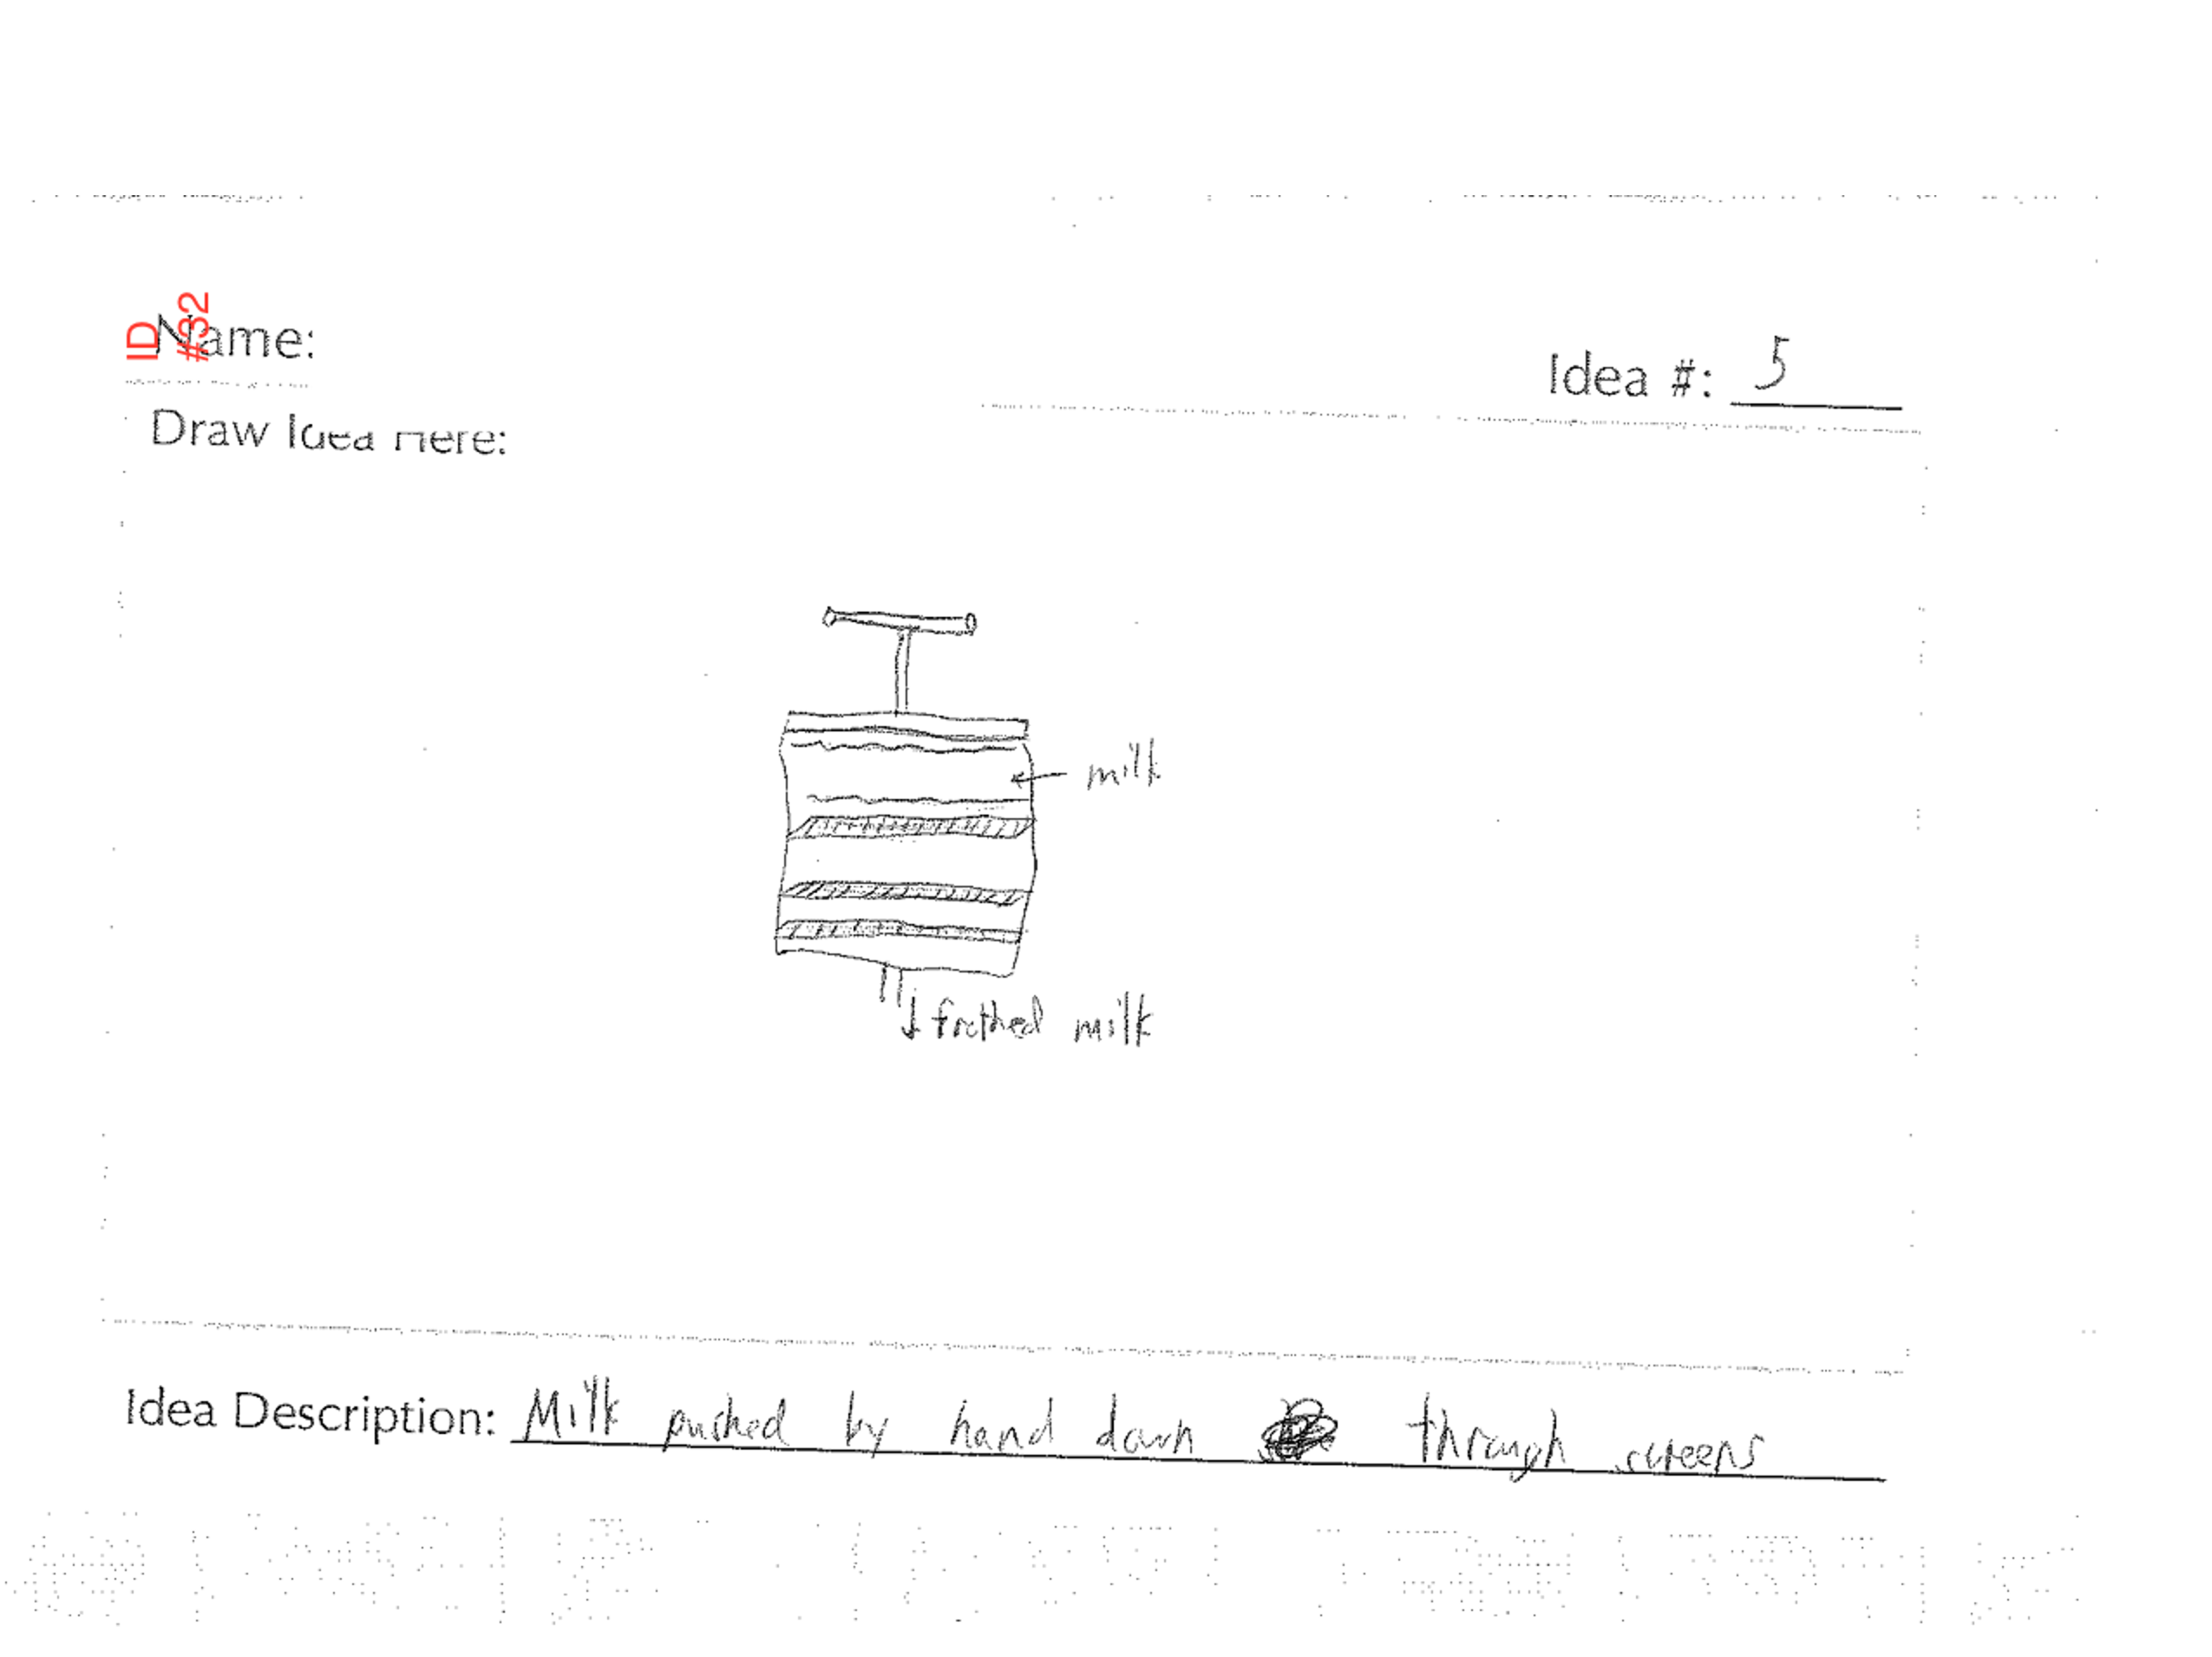 ID
#32
Name:
Idea #: 5
Draw Idea Here:
milk
frothed milk
Idea Description: Milk pushed by hand down through screens